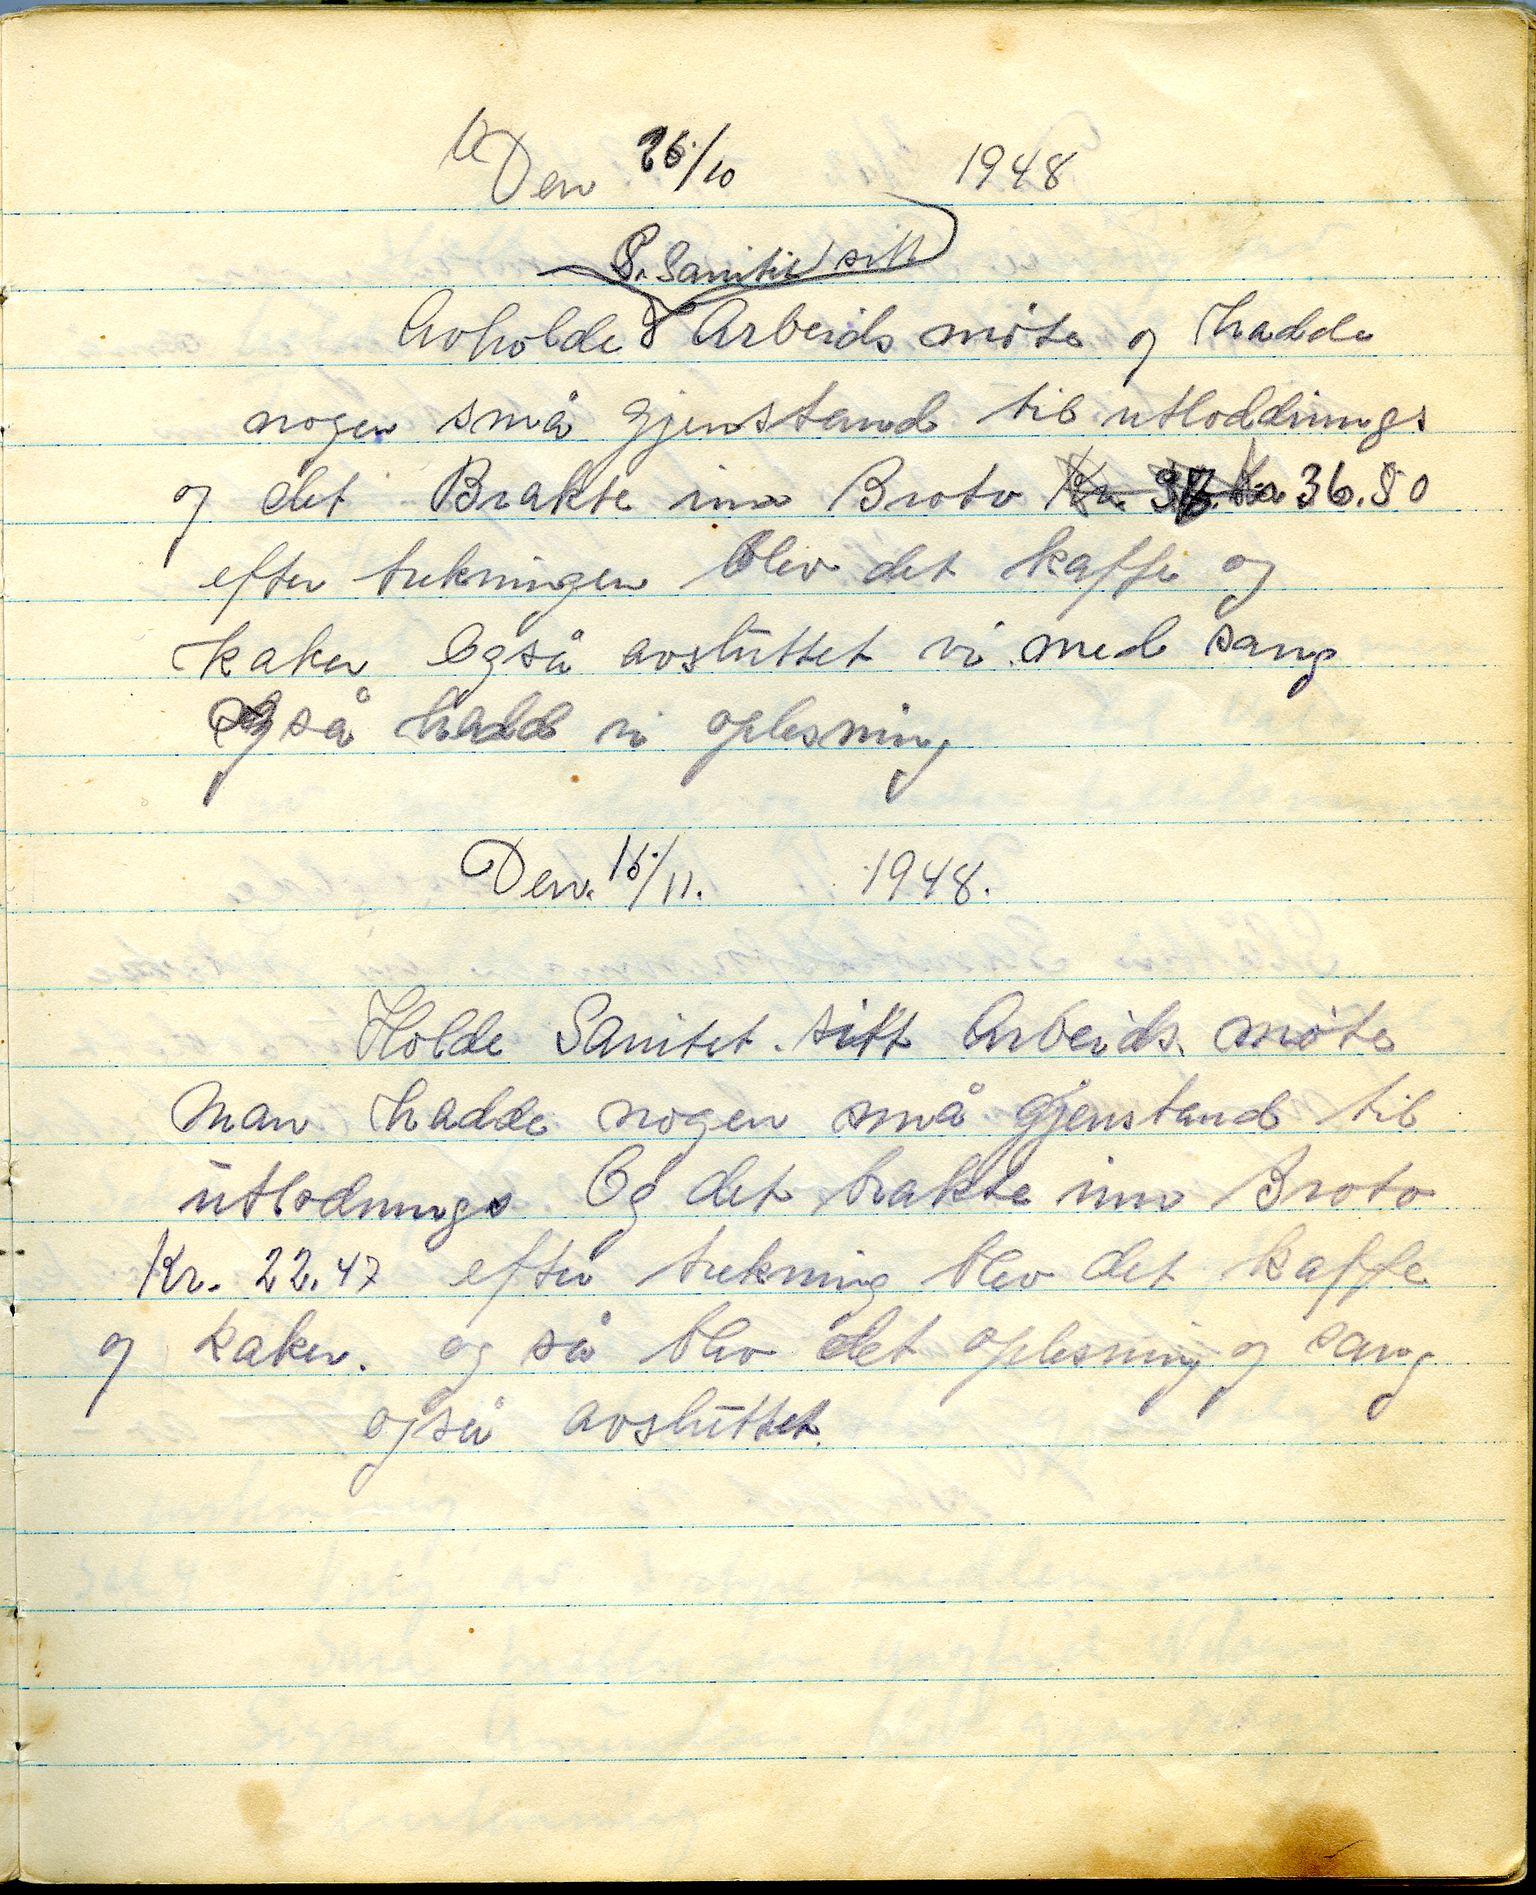 Den 26/10 1948
S. Sanitet sitt
Avholde Arbeids møte og hadde
nogen små gjenstand til utloddnings
og det Brakte inn Broto Kr. 36.50
efter trekningen blev det kaffe og
kaker Også avsluttet vi med sang
Også hadd vi oplesning
Den. 16/11. 1948.
Holde Sanitet. sitt Arbeids. møte
Man hadde nogen små gjenstand til
utlodnings. Og det brakte inn Broto
Kr. 22.47 efter trekning blev det kaffe
og kaker. og så blev det oplesning og sang
også avsluttet.